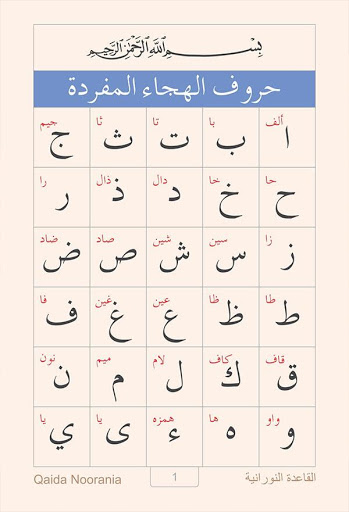 بسم الله الرحمن الرحيم
حروف الهجاء المفردة
ألف با تا ثا جيم
ا ب ت ث ج
حا خا دال ذال را
ح خ د ذ ر
زا سين شين صاد ضاد
ز س ش ص ض
طا ظا عين غين فا
ط ظ ع غ ف
قاف كاف لام ميم نون
ق ك ل م ن
واو ها همزه يا يا
و ه ء ى ي
Qaida Noorania 1 القاعدة النورانية